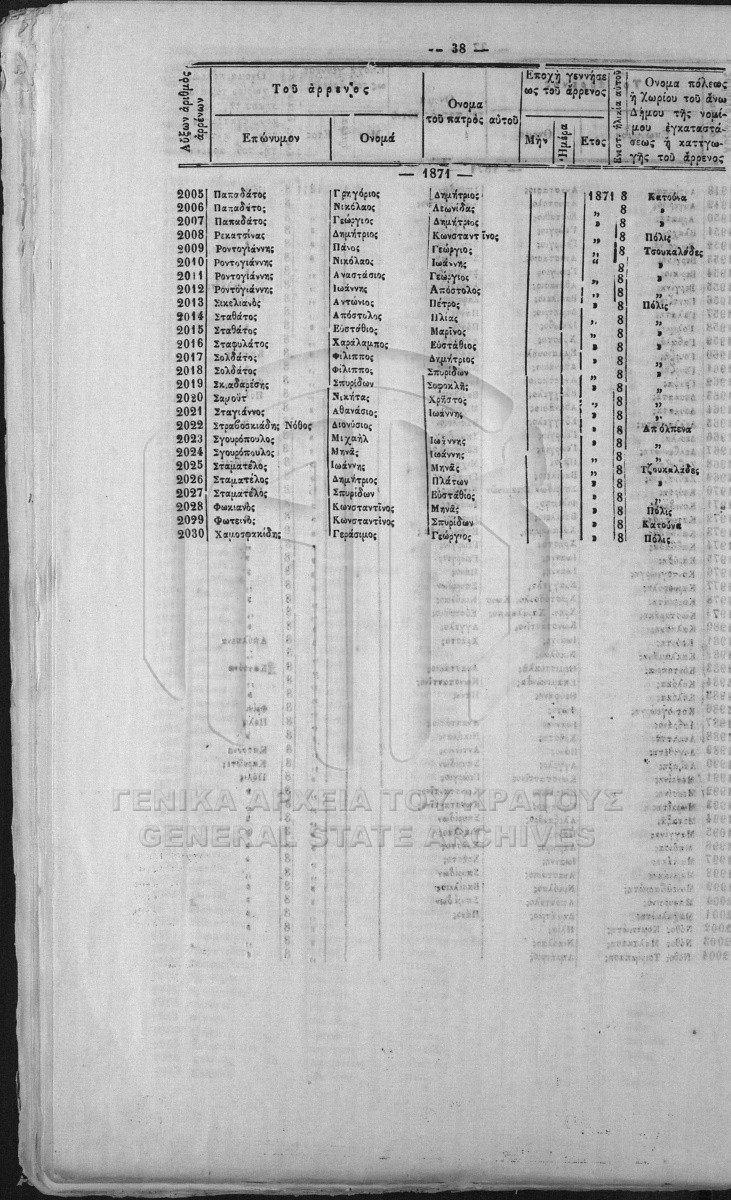 — 38 —
Αὔξων ἀριθμὸς ἀρρένων
Τοῦ ἄρρενος
Ἐπώνυμον
Ονομά
Ονομα τοῦ πατρὸς αὐτοῦ
Εποχὴ γεννήσεως τοῦ ἄρρενος
Μὴν
Ἡμέρα
Ετος
Ενεστ. ἡλικία αὐτοῦ
Ονομα πόλεως ἢ Χωρίου τοῦ ἄνω Δήμου τῆς νομίμου ἐγκαταστάσεως ἢ καταγωγῆς τοῦ ἄρρενος
— 1871 —
2005 Παπαδάτος Γρηγόριος Δημήτριος 1871 8 Κατούνα
2006 Παπαδάτος Νικόλαος Λεωνίδας „ 8 »
2007 Παπαδάτος Γεώργιος Δημήτριος » 8 »
2008 Ρεκατσίνας Δημήτριος Κωνσταντῖνος „ 8 Πόλις
2009 Ροντογιάννης Πάνος Γεώργιος „ 8 Τσουκαλάδες
2010 Ροντογιάννης Νικόλαος Ἰωάννης “ 8 »
2011 Ροντογιάννης Αναστάσιος Γεώργιος „ 8 »
2012 Ροντογιάννης Ιωάννης Απόστολος „ 8 „
2013 Σικελιανὸς Αντώνιος Πέτρος » 8 Πόλις
2014 Σταθάτος Απόστολος Ηλίας „ 8 „
2015 Σταθάτος Εὐστάθιος Μαρῖνος „ 8 »
2016 Σταφυλάτος Χαράλαμπος Εὐστάθιος » 8 »
2017 Σολδάτος Φίλιππος Δημήτριος » 8 „
2018 Σολδάτος Φίλιππος Σπυρίδων „ 8 »
2019 Σκιαδαρέσης Σπυρίδων Σοφοκλῆς » 8 »
2020 Σαμοὺτ Νικήτας Χρῆστος „ 8 „
2021 Σταγιάννος Αθανάσιος Ιωάννης » 8 „
2022 Στραβοσκιάδης Νόθος Διονύσιος » 8 Απόλπενα
2023 Σγουρόπουλος Μιχαήλ Ιωάννης » 8 „
2024 Σγουρόπουλος Μηνᾶς Ιωάννης „ 8 „
2025 Σταματέλος Ιωάννης Μηνᾶς „ 8 Τζουκαλάδες
2026 Σταματέλος Δημήτριος Πλάτων » 8 »
2027 Σταματέλος Σπυρίδων Εὐστάθιος » 8 „
2028 Φωκιανὸς Κωνσταντῖνος Μηνᾶς » 8 Πόλις
2099 Φωτεινὸς Κωνσταντῖνος Σπυρίδων » 8 Κατούνα
2030 Χαμοσφακίδης Γεράσιμος Γεώργιος » 8 Πόλις
ΓΕΝΙΚΑ ΑΡΧΕΙΑ ΤΟΥ ΚΡΑΤΟΥΣ
GENERAL STATE ARCHIVES